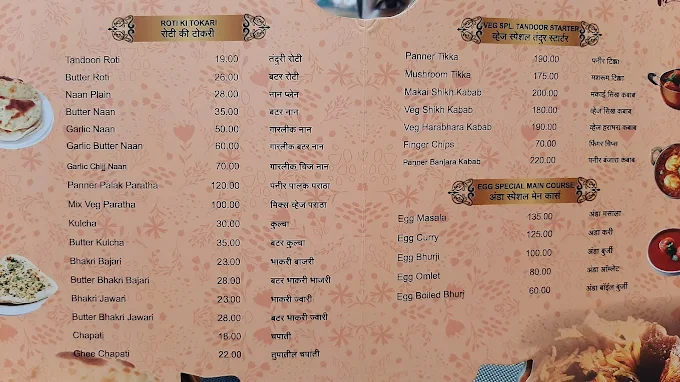 ROTI KI TOKARI
रोटी की टोकरी
Tandoori Roti 19.00 तंदुरी रोटी
Butter Roti 26.00 बटर रोटी
Naan Plain 28.00 नान प्लेन
Butter Naan 35.00 बटर नान
Garlic Naan 50.00 गारलीक नान
Garlic Butter Naan 60.00 गारलीक बटर नान
Garlic Chij Naan 70.00 गारलीक चिज नान
Panner Palak Paratha 120.00 पनीर पालक पराठा
Mix Veg Paratha 100.00 मिक्स व्हेज पराठा
Kulcha 30.00 कुल्चा
Butter Kulcha 35.00 बटर कुल्चा
Bhakri Bajari 23.00 भाकरी बाजरी
Butter Bhakri Bajari 28.00 बटर भाकरी भाजरी
Bhakri Jawari 23.00 भाकरी ज्वारी
Butter Bhakri Jawari 28.00 बटर भाकरी ज्वारी
Chapati 16.00 चपाती
Ghee Chapati 22.00 तुपातील चपाती
VEG SPL. TANDOOR STARTER
व्हेज स्पेशल तंदुर स्टार्टर
Panner Tikka 190.00 पनीर टिक्का
Mushroom Tikka 175.00 मशरूम टिक्का
Makai Shikh Kabab 200.00 मकाई सिख कबाब
Veg Shikh Kabab 180.00 व्हेज सिख कबाब
Veg Harabhara Kabab 190.00 व्हेज हराभरा कबाब
Finger Chips 70.00 फिंगर चिप्स
Panner Banjara Kabab 220.00 पनीर बंजारा कबाब
EGG SPECIAL MAIN COURSE
अंडा स्पेशल मेन कोर्स
Egg Masala 135.00 अंडा मसाला
Egg Curry 125.00 अंडा करी
Egg Bhurji 100.00 अंडा बुर्जी
Egg Omlet 80.00 अंडा ऑम्लेट
Egg Boiled Bhurj 60.00 अंडा बॉईल बुर्जी